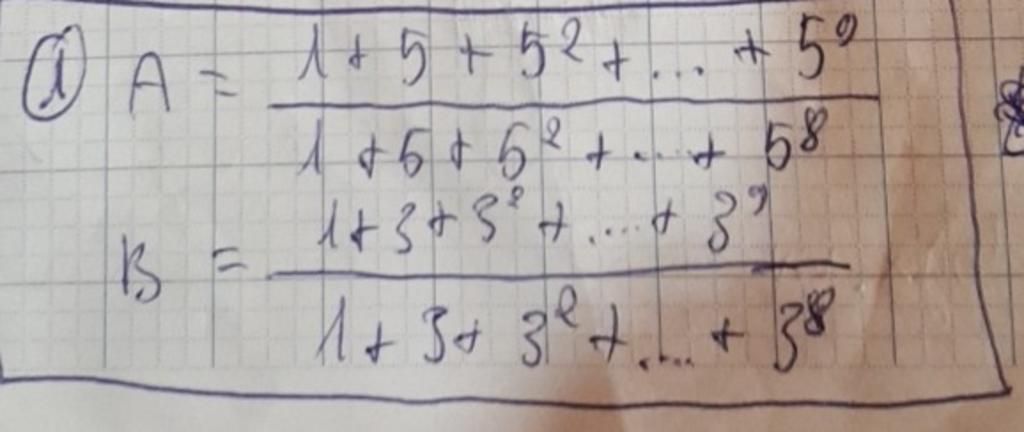 ① A = 1 + 5 + 5² + ... + 5⁹
1 + 5 + 5² + ... + 5⁸
B = 1 + 3 + 3² + .... + 3⁹
1 + 3 + 3² + .... + 3⁸